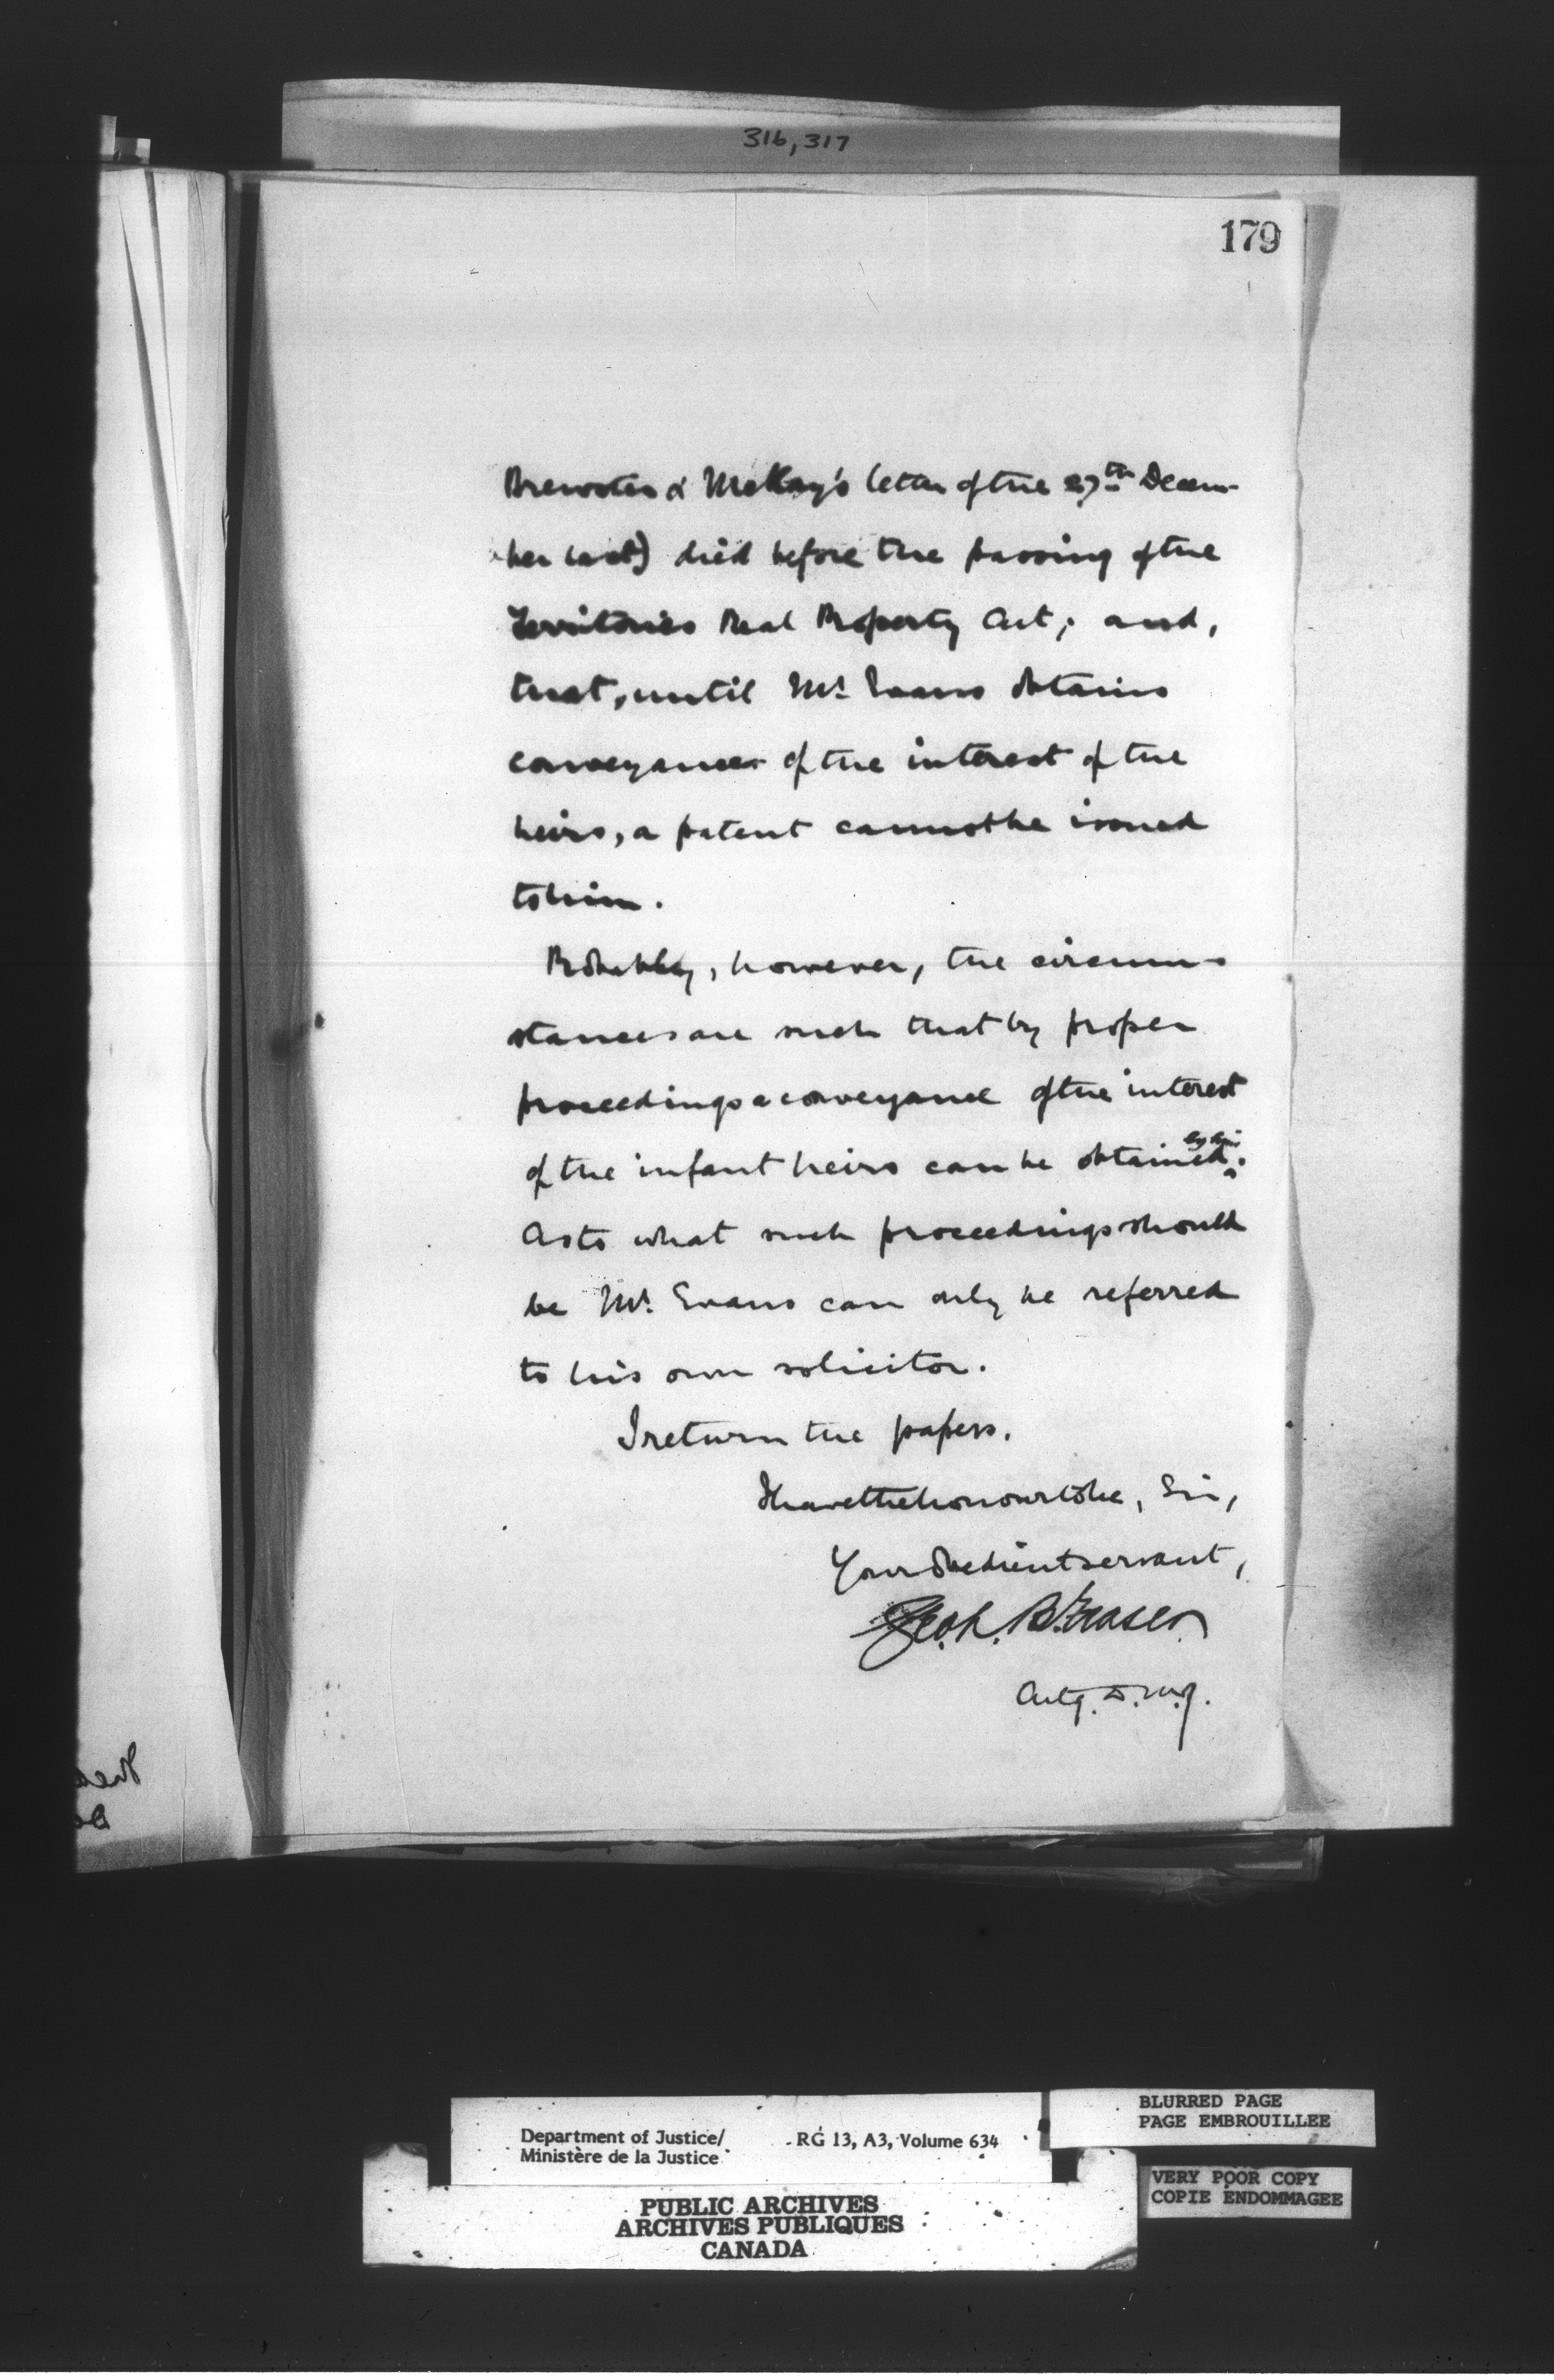 316, 317
179
Brewster & McKay's letter of the 27th Decem-
ber last) died before the passing of the
Territories Real Property Act; and,
that, until Mr. Evans obtains
conveyances of the interest of the
heirs, a patent cannot be issued
to him.
Probably, however, the circum-
stances are such that by proper
proceedings a conveyance of the interest
by him
of the infant heirs can be obtained.
As to what such proceedings should
be Mr. Evans can only be referred
to his own solicitor.
I return the papers.
I have the honour to be, Sir,
Your obedient servant,
Fraser
Actg. D.M.J.
BLURRED PAGE
PAGE EMBROUILLEE
Department of Justice/ RG 13, A3, Volume 634
Ministère de la Justice
VERY POOR COPY
COPIE ENDOMMAGEE
PUBLIC ARCHIVES
ARCHIVES PUBLIQUES
CANADA